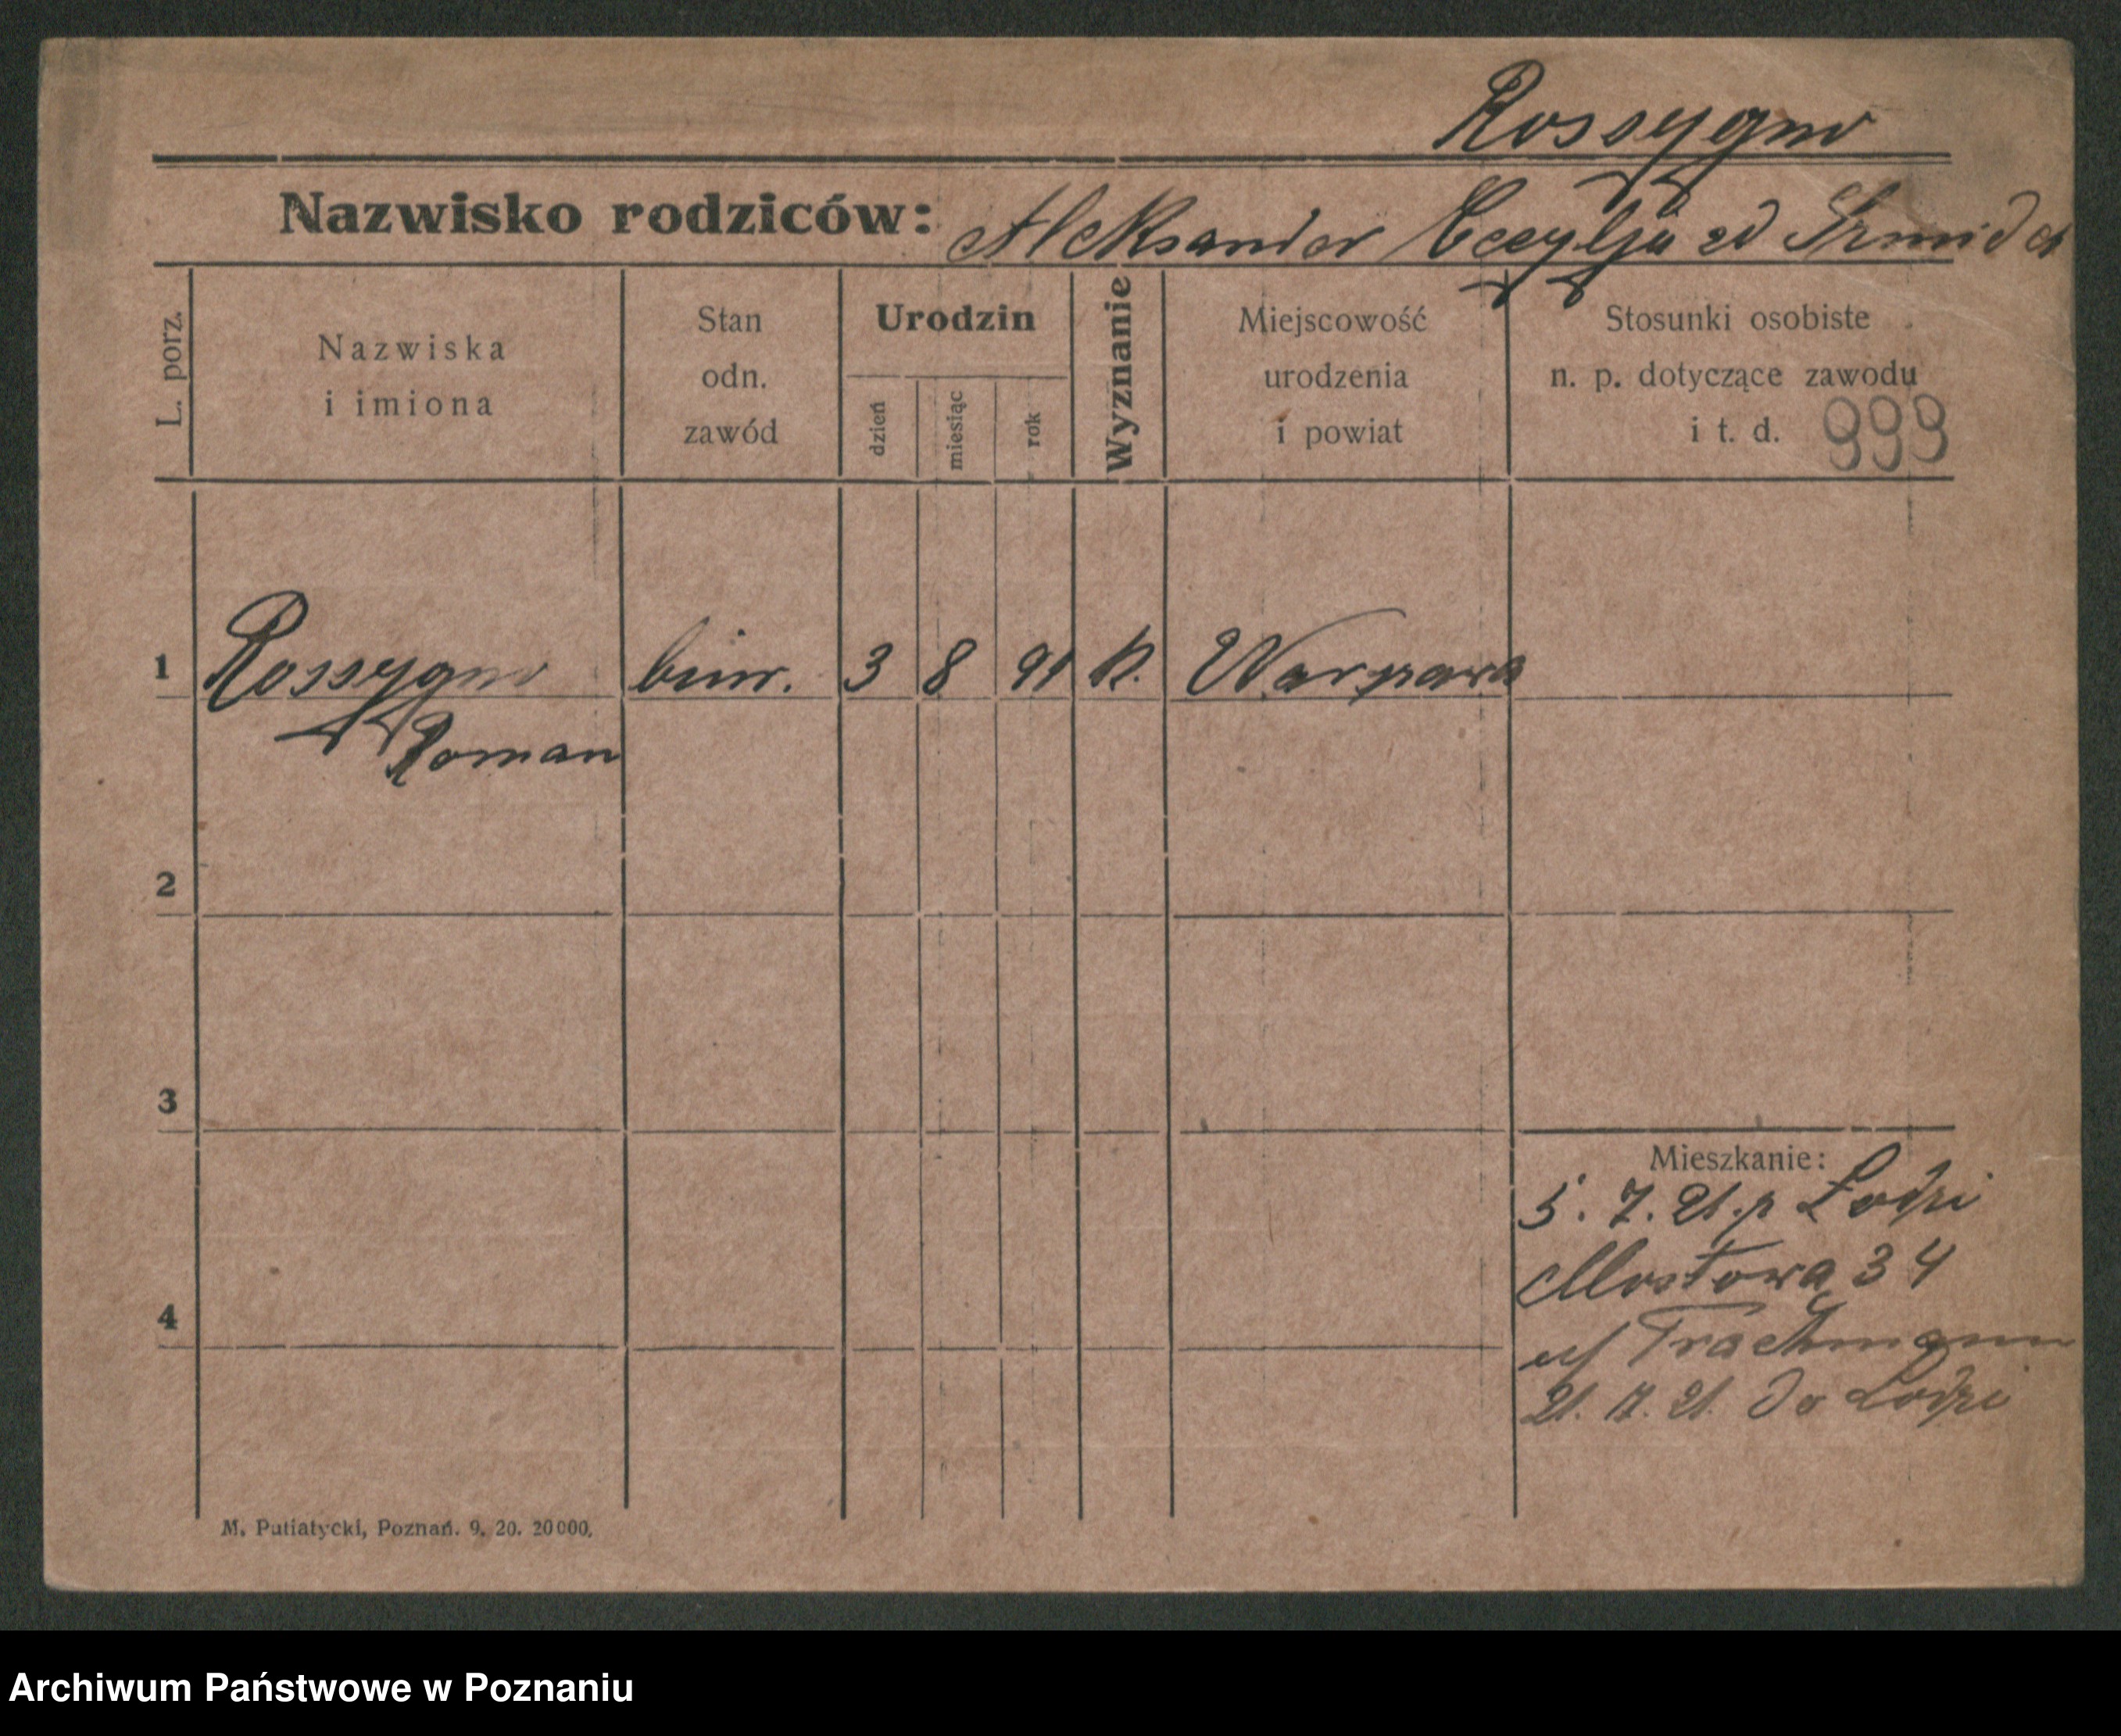 Rossygno
Nazwisko rodziców: Aleksander Cecylja zd Szmidt
L. porz.
Nazwiska
i imiona
Stan
odn.
zawód
Urodzin
dzień
miesiąc
rok
Wyznanie
Miejscowość
urodzenia
i powiat
Stosunki osobiste
n. p. dotyczące zawodu
i t. d. 999
1 Rossygno biur. 3 8 91 k. Warszawa
Roman
2
3
4
Mieszkanie:
5. 7. 21. z Łodzi
Mostowa 34
u/ Trachmann
21. 7. 21. do Łodzi
M. Putiatycki, Poznań. 9. 20. 20000.
Archiwum Państwowe w Poznaniu